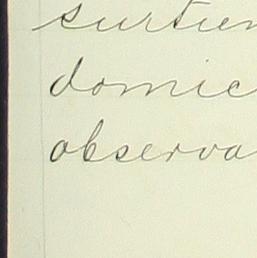 surtien
domic
observa